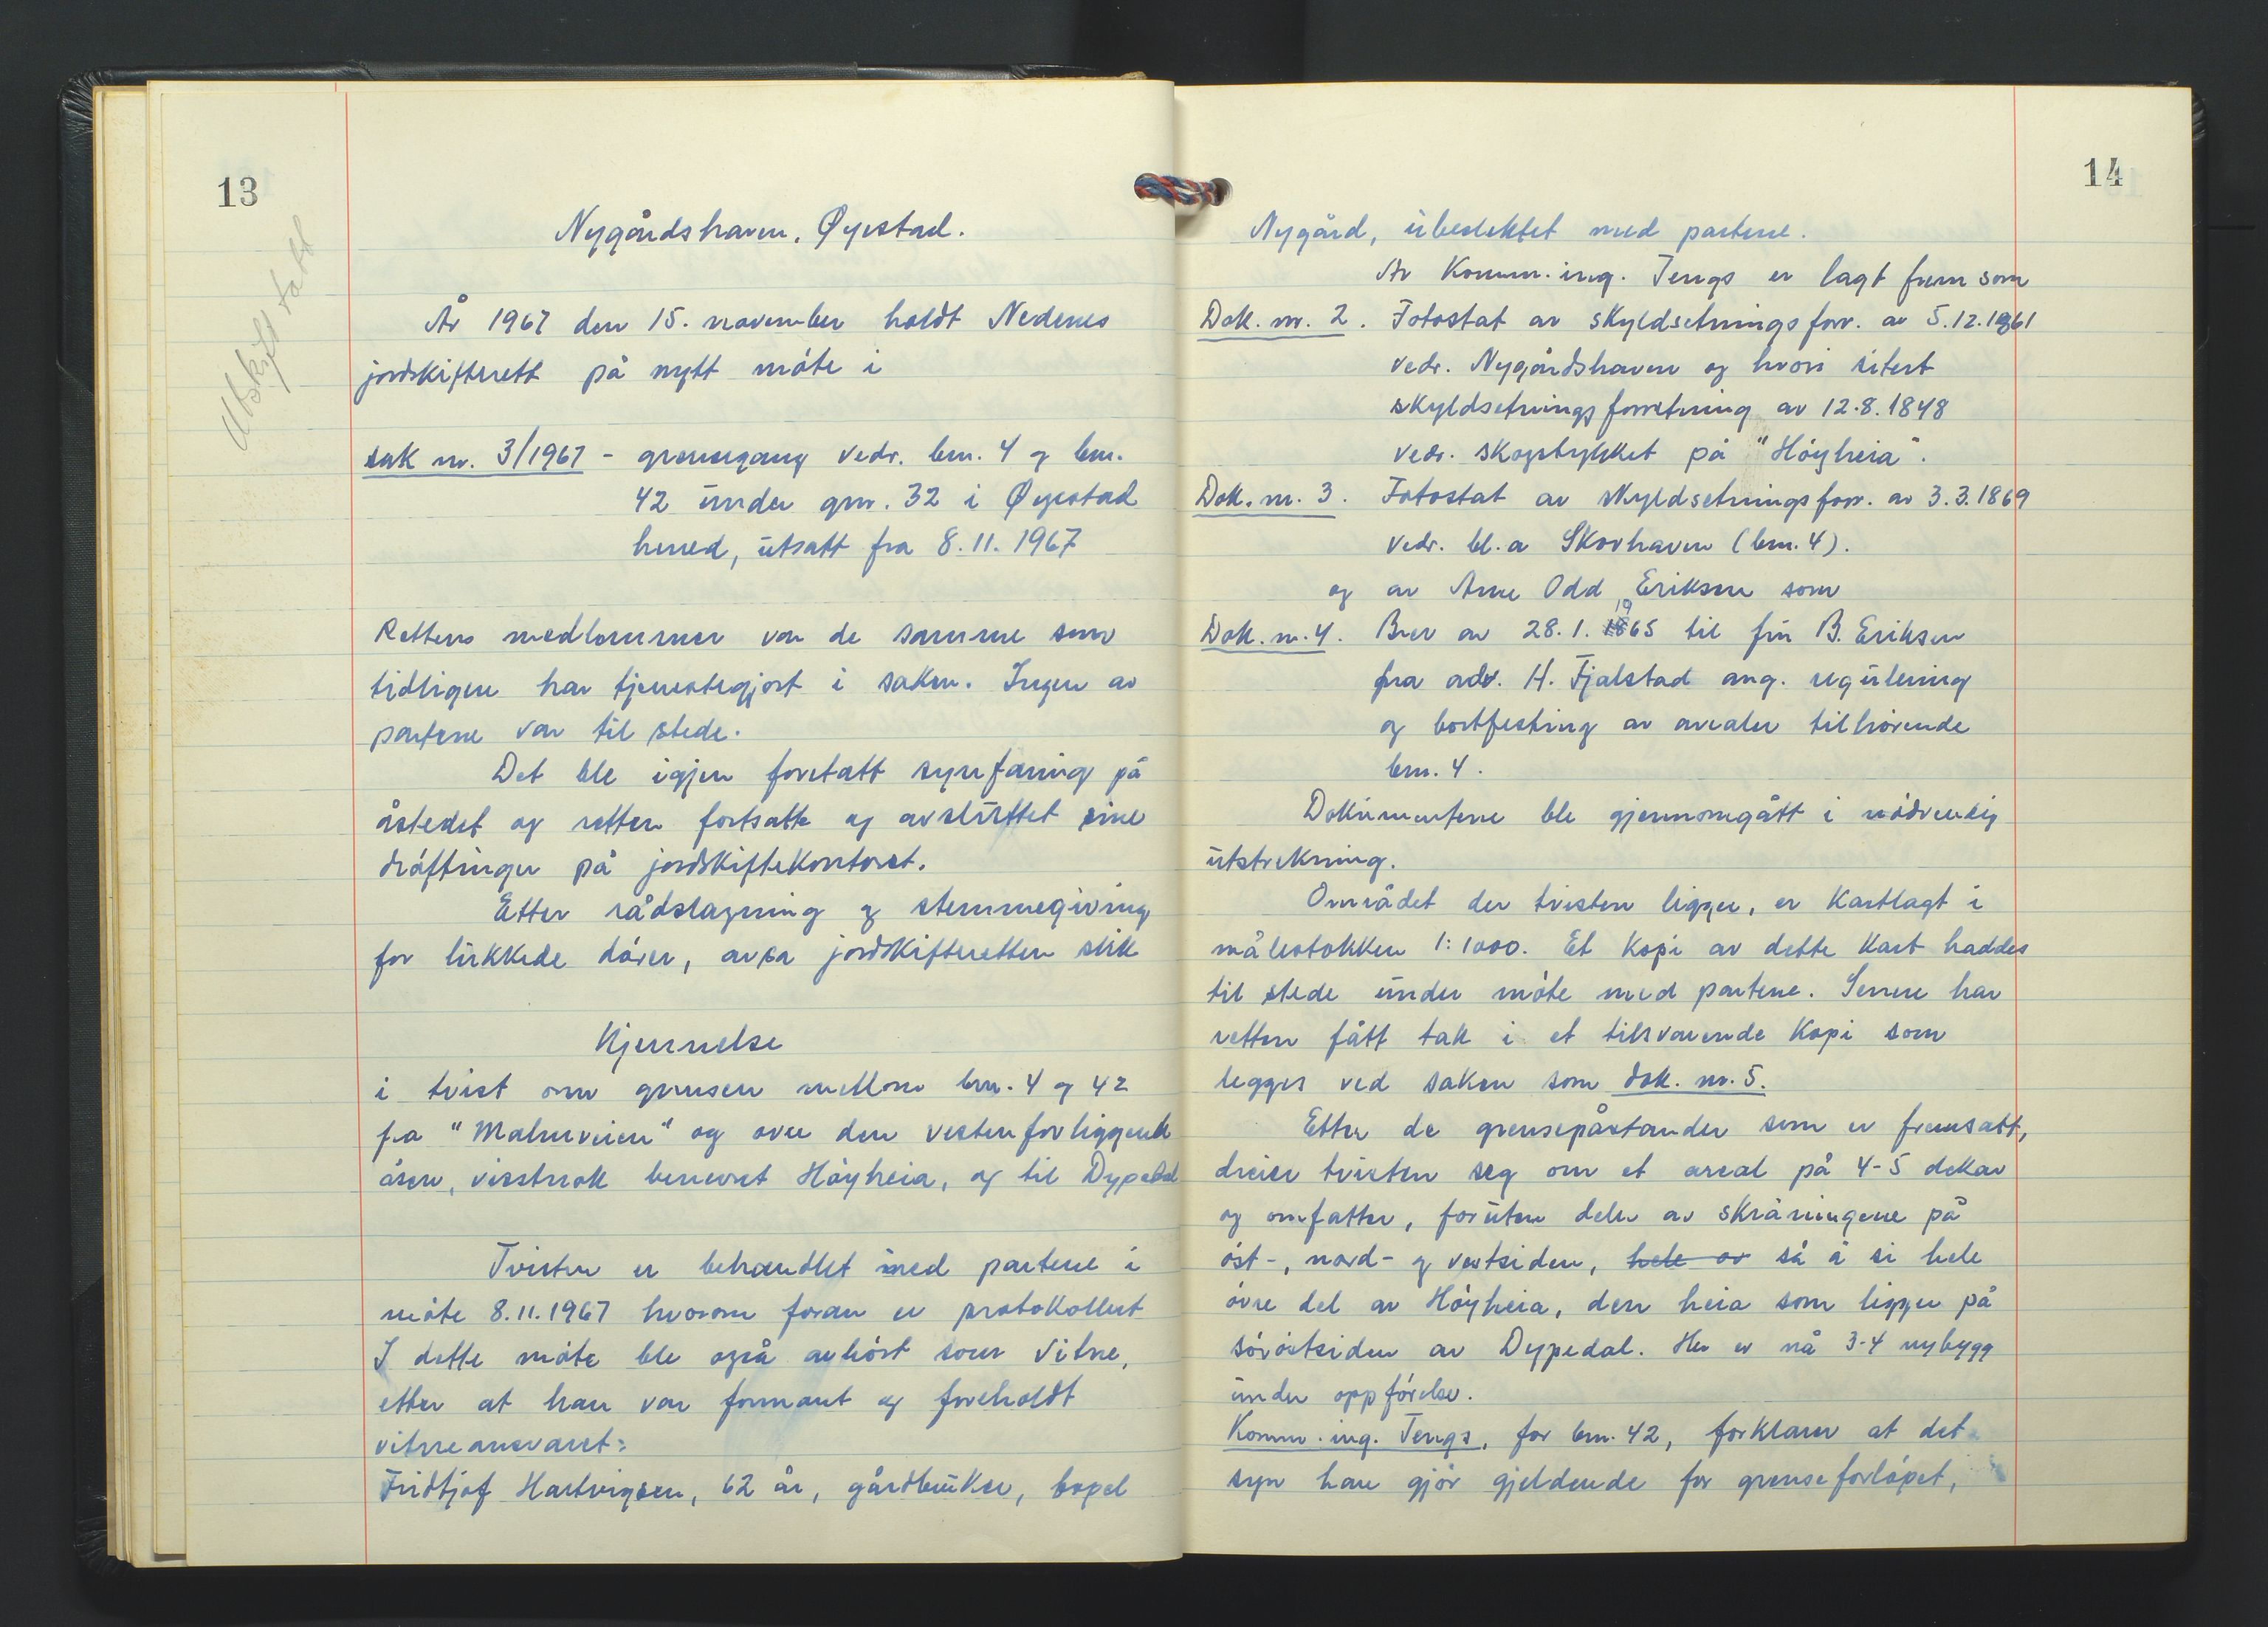 13
Avskrift tatt
Nygårdshaven, Øyestad.
År 1967 den 15. november holdt Nedenes
jordskifterett på nytt möte i
sak nr. 3/1967 - grensegang vedr. bnr. 4 og bnr.
42 under gnr. 32 i Øyestad
herred, utsatt fra 8.11.1967
Rettens medlemmer var de samme som
tidligere har tjenestegjort i saken. Ingen av
partene var til stede.
Det ble igjen foretatt synfaring på
åstedet og retten fortsatte og avsluttet sine
dröftinger på jordskiftekontoret.
Etter rådslagning og stemmegiving
for lukkede dörer, avsa jordskifteretten slik
Kjennelse
i tvist om grensen mellom bnr. 4 og 42
fra "Malmveien" og over den vestenforliggende
åsen, visstnok benevnt Höyheia, og til Dypedal
Tvisten er behandlet med partene i
möte 8.11.1967 hvorom foran er protokollert
I dette möte ble også avhört som vitne,
etter at han var formant og foreholdt
vitneansvaret:
Fridtjof Hartvigsen, 62 år, gårdbruker, bopel
14
Nygård, ubeslektet med partene.
Av Komm.ing. Tengs er lagt frem som
Dok. nr. 2. Fotostat av skyldsetningsforr. av 5.12.1861
vedr. Nygårdshaven og hvori sitert
skyldsetningsforretning av 12.8.1848
vedr. skogstykket på "Höyheia".
Dok. nr. 3. Fotostat av skyldsetningsforr. av 3.3.1869
vedr. bl.a Skovhaven (bnr. 4).
og av Arne Odd Eriksen som
Dok. nr. 4. Brev av 28.1.1965 til fru B. Eriksen
fra adv. H. Fjalstad ang. regulering
og bortfesting av arealer tilhörende
bnr. 4.
Dokumentene ble gjennomgått i nödvendig
utstrekning.
Området der tvisten ligger, er kartlagt i
målestokken 1:1000. Et kopi av dette kart haddes
til stede under möte med partene. Senere har
retten fått tak i et tilsvarende kopi som
legges ved saken som dok. nr. 5.
Etter de grensepåstander som er fremsatt,
dreier tvisten seg om et areal på 4-5 dekar
og omfatter, foruten deler av skråningene på
öst-, nord- og vestsiden, hele av så å si hele
övre del av Höyheia, den heia som ligger på
söröstsiden av Dypedal. Her er nå 3-4 nybygg
under oppförelse.
Komm.ing. Tengs, for bnr. 42, forklarer at det
syn han gjör gjeldende for grenseforlöpet,